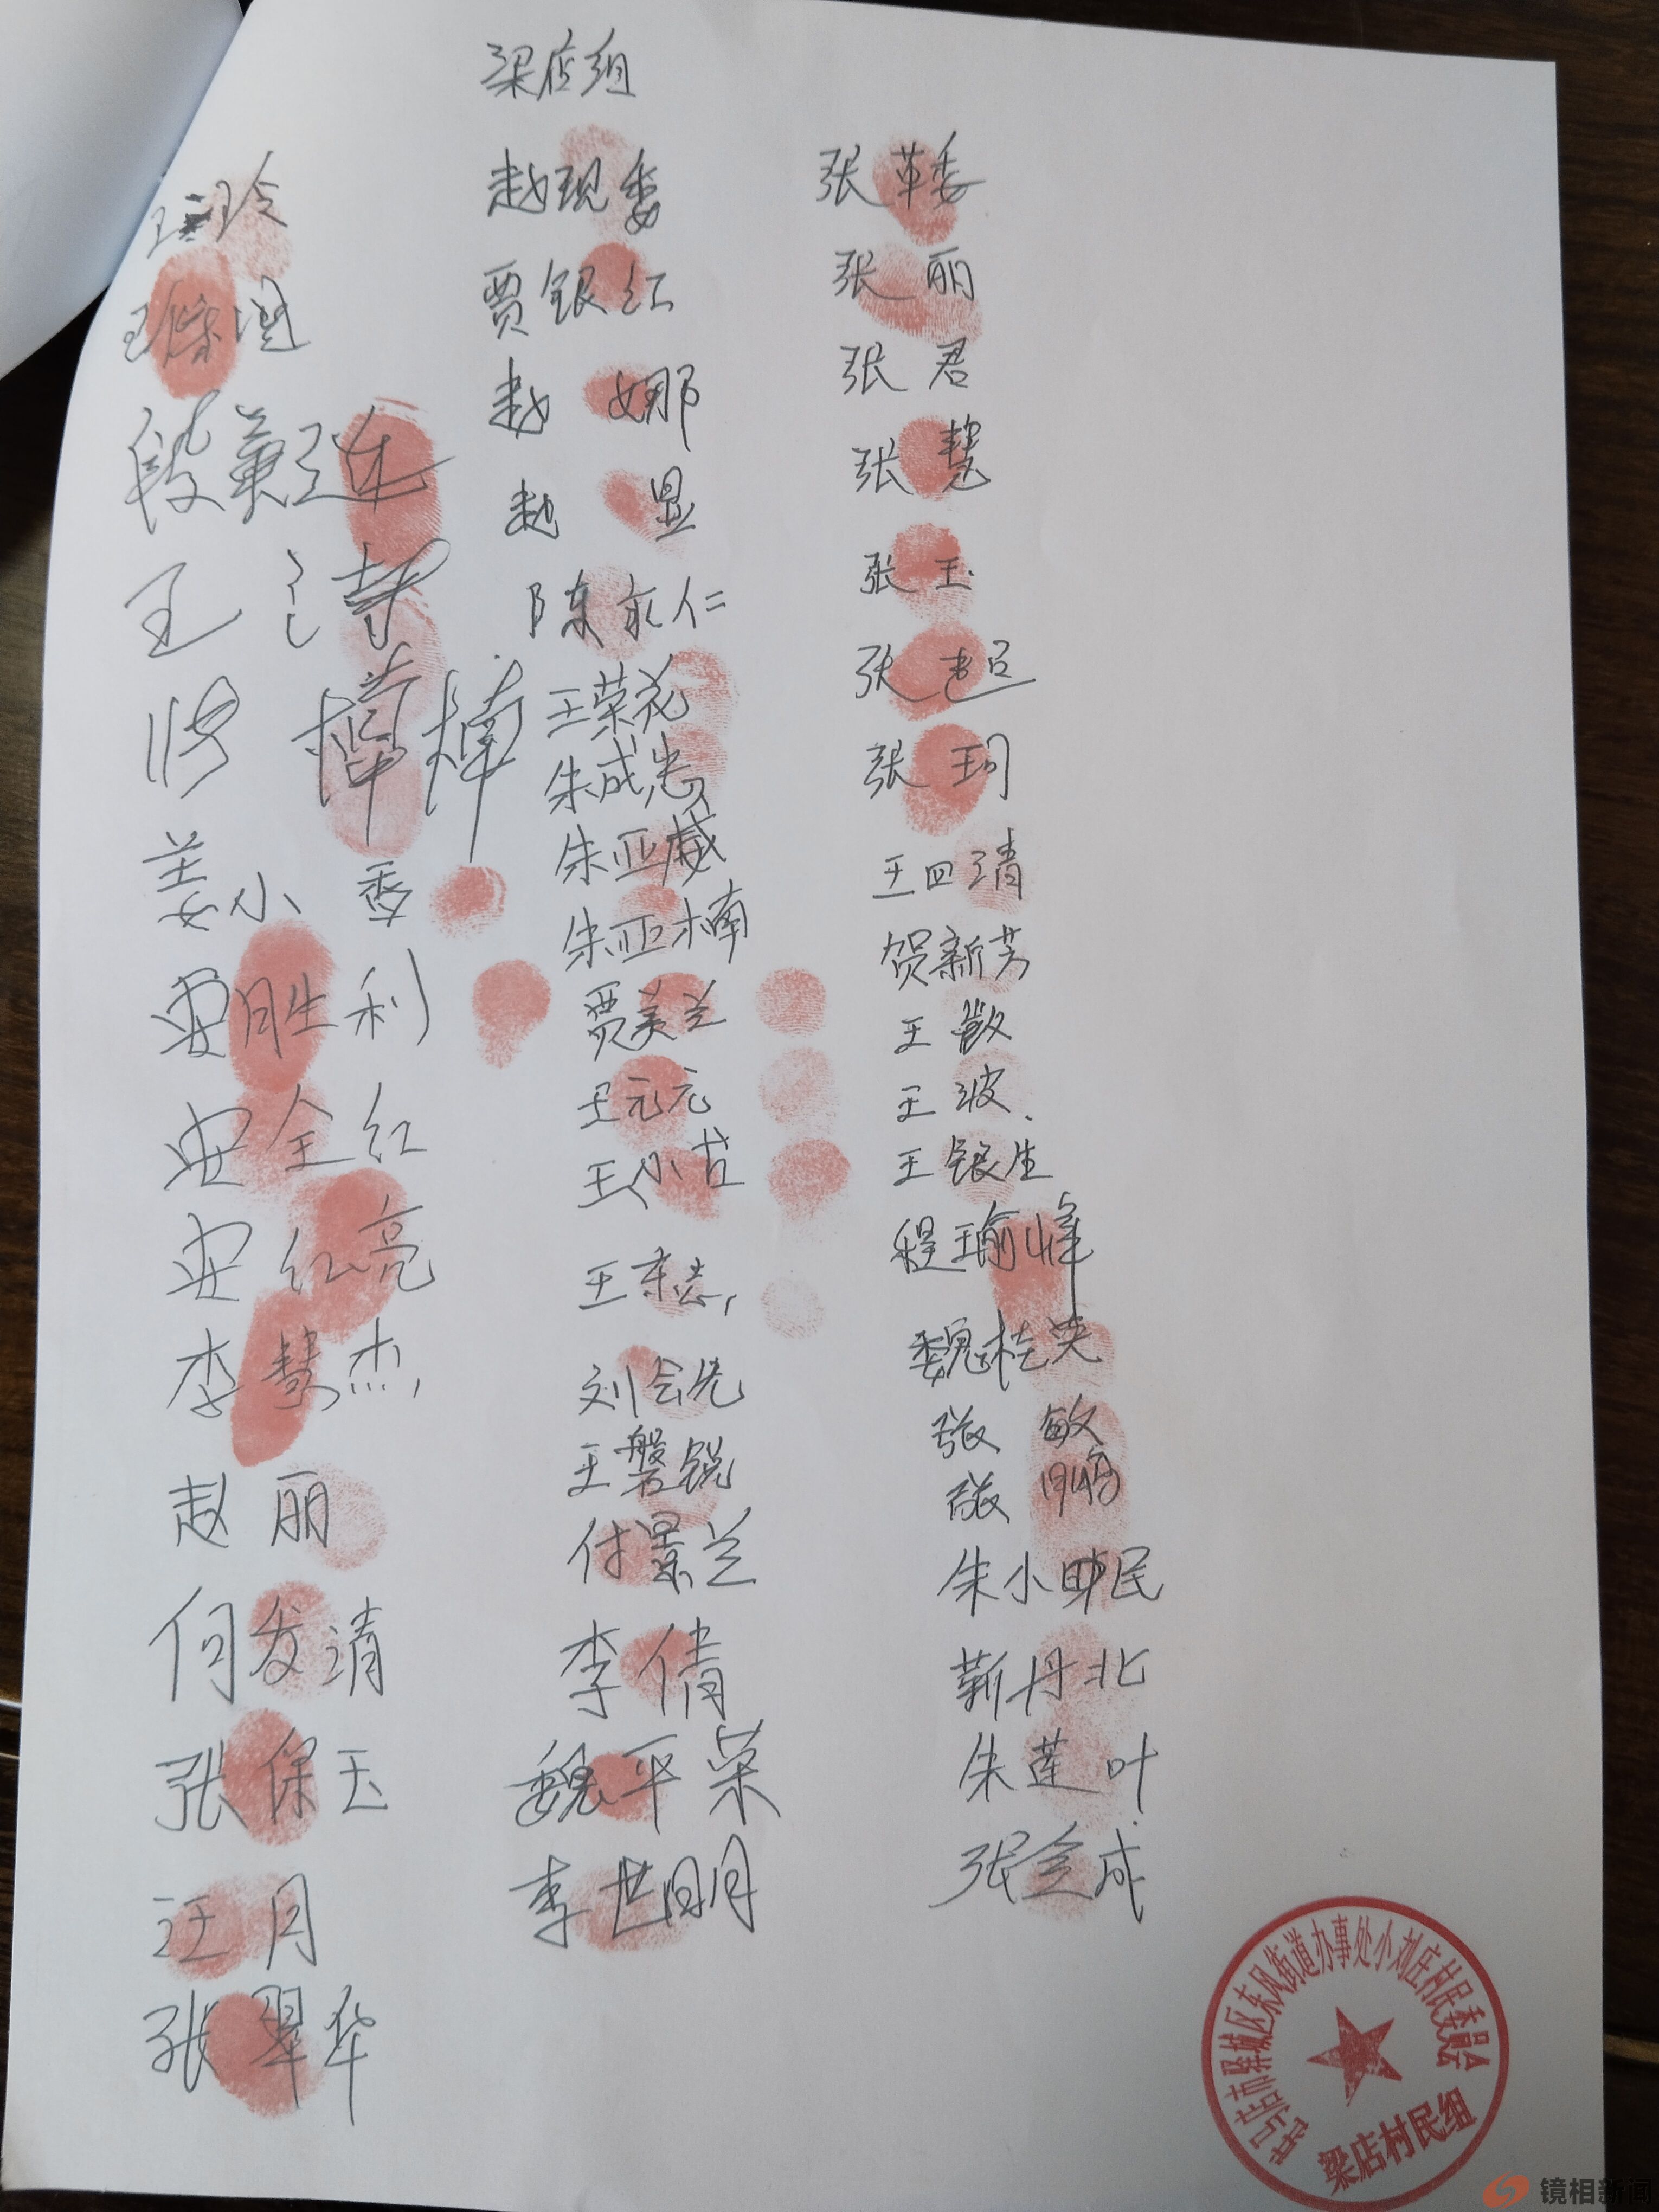 梁店组
王玲
段兰连
王
姜小香
安胜利
安全红
安红亮
李慧杰
赵丽
何发清
张保玉
汪月
张翠华
赵现委
贾银红
赵娜
赵显
陈永仁
王荣花
朱成忠
朱亚威
朱亚楠
贾美兰
王元元
王小古
王东志
刘会先
王磐锐
付景兰
李倩
魏平荣
李世明
张革委
张丽
张君
张慧
张玉
张超
张珂
王四清
贺新芳
王敏
王波
王银生
程瑜峰
魏桂英
张敏
张鹏
朱小民
靳丹北
朱莲叶
张全成
驻马店市驿城区东风街道办事处小刘庄村民委员会
梁店村民组
镜相新闻